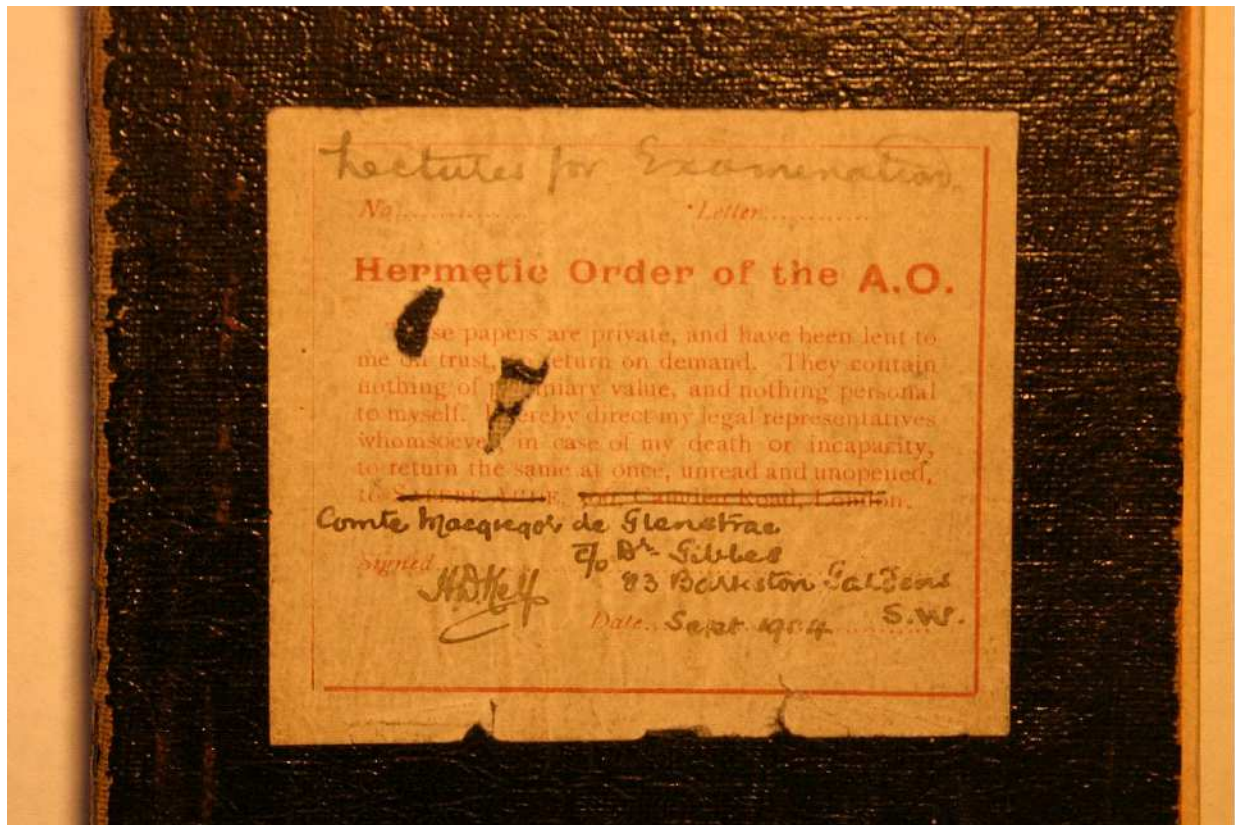 Lectures for Examination.
No............... Letter............
Hermetic Order of the A.O.
se papers are private, and have been lent to
me on trust, return on demand. They contain
nothing of value, and nothing personal
to myself. I hereby direct my legal representatives
whomsoever, in case of my death or incapacity,
to return the same at once, unread and unopened,
to Camden Road, London.
Comte Macgregor de Glenstrae
Signed c/o Dr. Gibbes
83 Barkston Gardens
S.W.
Date Sept 1904